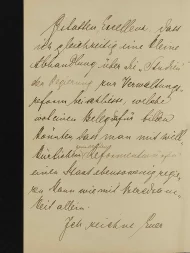 Gestatten Excellenz, dass
ich gleichzeitig eine kleine
Abhandlung über die „Studien
der Regierung zur Verwaltungs-
reform beischliesse, welche
einen Beleg dafür bilden
könnten dass man mit
Reformen
einen Staat ebensowenig regie-
ren kann wie mit
keit allein.
Ich zeichne Euer